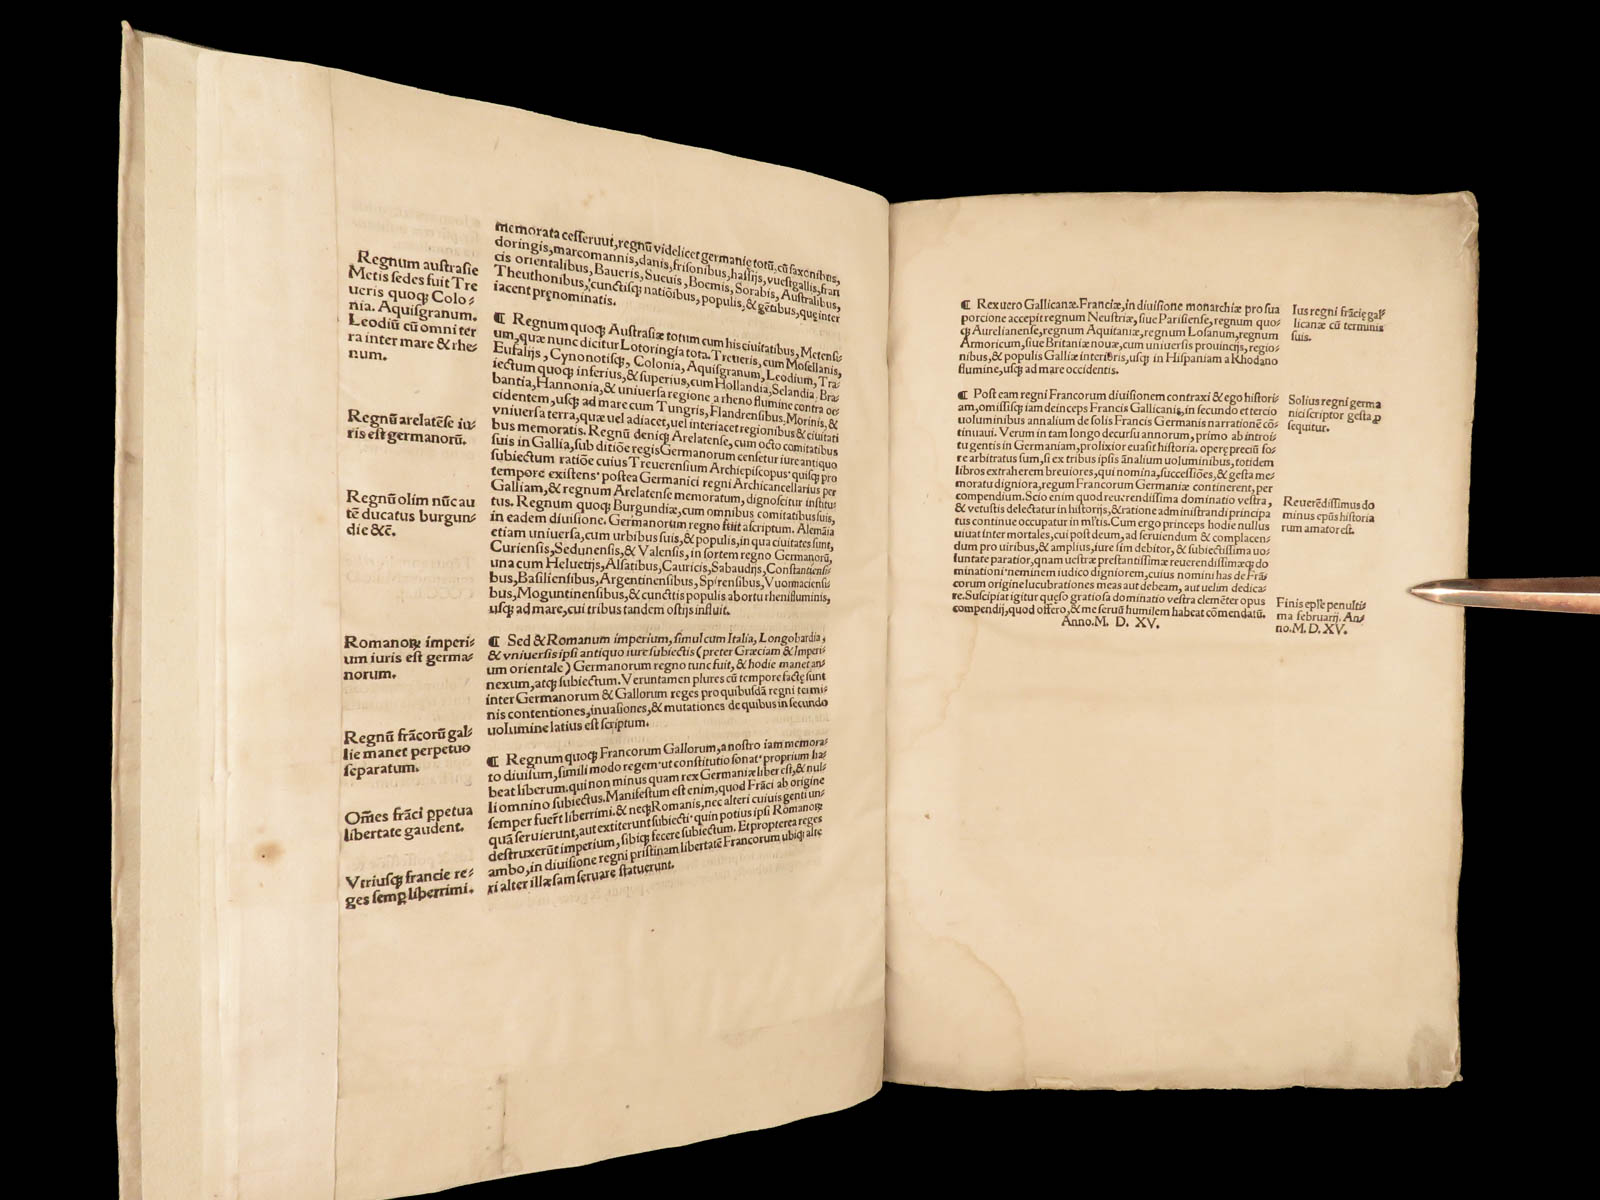 memorata cesseruut, regnū videlicet germanię totū, cū saxonibus,
doringis, marcomannis, danis, frisonibus, hassijs, vuestgallis, fran
cis orientalibus, Baueris, Sueuis, Boemis, Sorabis, Australibus,
Theuthonibus, cunctisqꝫ natiōibus, populis, & gētibus, quę inter
iacent prenominatis.
Regnum austrasie
Metis sedes fuit Tre
ueris quoqꝫ Colo⸗
nia. Aquisgranum.
Leodiū cū omni ter
ra inter mare & rhe⸗
num.
¶ Regnum quoqꝫ Austrasiæ totum cum his ciuitatibus, Metensi⸗
um, quæ nunc dicitur Lotoringia tota. Treueris, cum Mosellanis,
Eufalijs, Cynonotisqꝫ, Colonia, Aquisgranum, Leodium, Tra⸗
iectum quoqꝫ inferius, & superius, cum Hollandia, Selandia, Bra⸗
bantia, Hannonia, & uniuersa regione a rheno flumine contra oc⸗
cidentem, usqꝫ ad mare cum Tungris, Flandrensibus, Morinis, &
vniuersa terra, quæ uel adiacet, uel interiacet regionibus & ciuitati
bus memoratis. Regnū deniqꝫ Arelatense, cum octo comitatibus
suis in Gallia, sub ditiōe regis Germanorum censetur iure antiquo
subiectum ratiōe cuius Treuerensium Archiepiscopus quisqꝫ pro
tempore existens postea Germanici regni Archicancellarius per
Galliam, & regnum Arelatense memoratum, dignoscitur institu⸗
tus. Regnum quoqꝫ Burgundiæ, cum omnibus comitatibus suis,
in eadem diuisione. Germanorum regno fuit ascriptum. Alemāia
etiam uniuersa, cum urbibus suis, & populis, in qua ciuitates sunt,
Curiensis, Sedunensis, & Valensis, in sortem regno Germanorū,
una cum Heluetijs, Alsatibus, Cauricis, Sabaudijs, Constantiensi⸗
bus, Basiliensibus, Argentinensibus, Spirensibus, Vuormaciensi⸗
bus, Moguntinensibus, & cunctis populis ab ortu rheni fluminis,
usqꝫ ad mare, cui tribus tandem ostijs influit.
Regnū arelatēse iu⸗
ris est germanorū.
Regnū olim nūc au
tē ducatus burgun⸗
die &c̄.
Romanoꝝ imperi⸗
um iuris est germa⸗
norum.
¶ Sed & Romanum imperium, simul cum Italia, Longobardia,
& vniuersis ipsi antiquo iure subiectis (preter Græciam & Imperi⸗
um orientale) Germanorum regno tunc fuit, & hodie manet an⸗
nexum, atqꝫ subiectum. Veruntamen plures cū tempore factę sunt
inter Germanorum & Gallorum reges pro quibusdā regni termi⸗
nis contentiones, inuasiones, & mutationes de quibus in secundo
uolumine latius est scriptum.
Regnū frācorū gal⸗
lie manet perpetuo
separatum.
Om̄es frāci ꝑpetua
libertate gaudent.
Vtriusqꝫ francie re⸗
ges semꝑ liberrimi.
¶ Regnum quoqꝫ Francorum Gallorum, a nostro iam memora⸗
to diuisum, simili modo regem ut constitutio sonat proprium ha⸗
beat liberum. qui non minus quam rex Germaniæ liber est, & nul⸗
li omnino subiectus. Manifestum est enim, quod Frāci ab origine
semper fuer̄t liberrimi. & neqꝫ Romanis, nec alteri cuiuis genti un⸗
quā seruierunt, aut extiterunt subiecti quin potius ipsi Romanoꝝ
destruxerūt imperium, sibiqꝫ fecere subiectum. Et propterea reges
ambo, in diuisione regni pristinam libertatē Francorum ubiqꝫ alte
ri alter illæsam seruare statuerunt.
¶ Rex uero Gallicanæ. Franciæ, in diuisione monarchiæ pro sua
porcione accepit regnum Neustriæ, siue Parisiense, regnum quo⸗
qꝫ Aurelianense, regnum Aquitaniæ, regnum Losanum, regnum
Armoricum, siue Britaniæ nouæ, cum uniuersis prouincijs, regio⸗
nibus, & populis Galliæ interibris, usqꝫ in Hispaniam a Rhodano
flumine, usqꝫ ad mare occidentis.
Ius regni frācię gal⸗
licanæ cū terminis
suis.
¶ Post eam regni Francorum diuisionem contraxi & ego histori⸗
am, omissisqꝫ iam deinceps Francis Gallicanis, in secundo et tercio
uoluminibus annalium de solis Francis Germanis narrationē cō⸗
tinuaui. Verum in tam longo decursu annorum, primo ab introi⸗
tu gentis in Germaniam, prolixior euasit historia. operę preciū fo⸗
re arbitratus sum, si ex tribus ipsis ānalium uoluminibus, totidem
libros extraherem breuiores, qui nomina, successiōes, & gesta me⸗
moratu digniora, regum Francorum Germaniæ continerent, per
compendium. Scio enim quod reuerendissima dominatio vestra,
& vetustis delectatur in historijs, & ratione administrandi principa
tus continue occupatur in ml̄tis. Cum ergo princeps hodie nullus
uiuat inter mortales, cui post deum, ad seruiendum & complacen⸗
dum pro uiribus, & amplius, iure sim debitor, & subiectissima uo⸗
luntate paratior, quam uestræ prestantissimæ reuerendissimæqꝫ do
minationi neminem iudico digniorem, cuius nomini has de Frā⸗
corum origine lucubrationes meas aut debeam, aut uelim dedica⸗
re. Suscipiat igitur quęso gratiosa dominatio vestra clemēter opus
compendij, quod offero, & me seruū humilem habeat cōmendatū.
Anno. M. D. XV.
Solius regni germa
nici scriptor gesta ꝑ
sequitur.
Reuerēdissimus do
minus ep̄us historia
rum amator est.
Finis ep̄le penulti⸗
ma februarij. An⸗
no. M. D. XV.